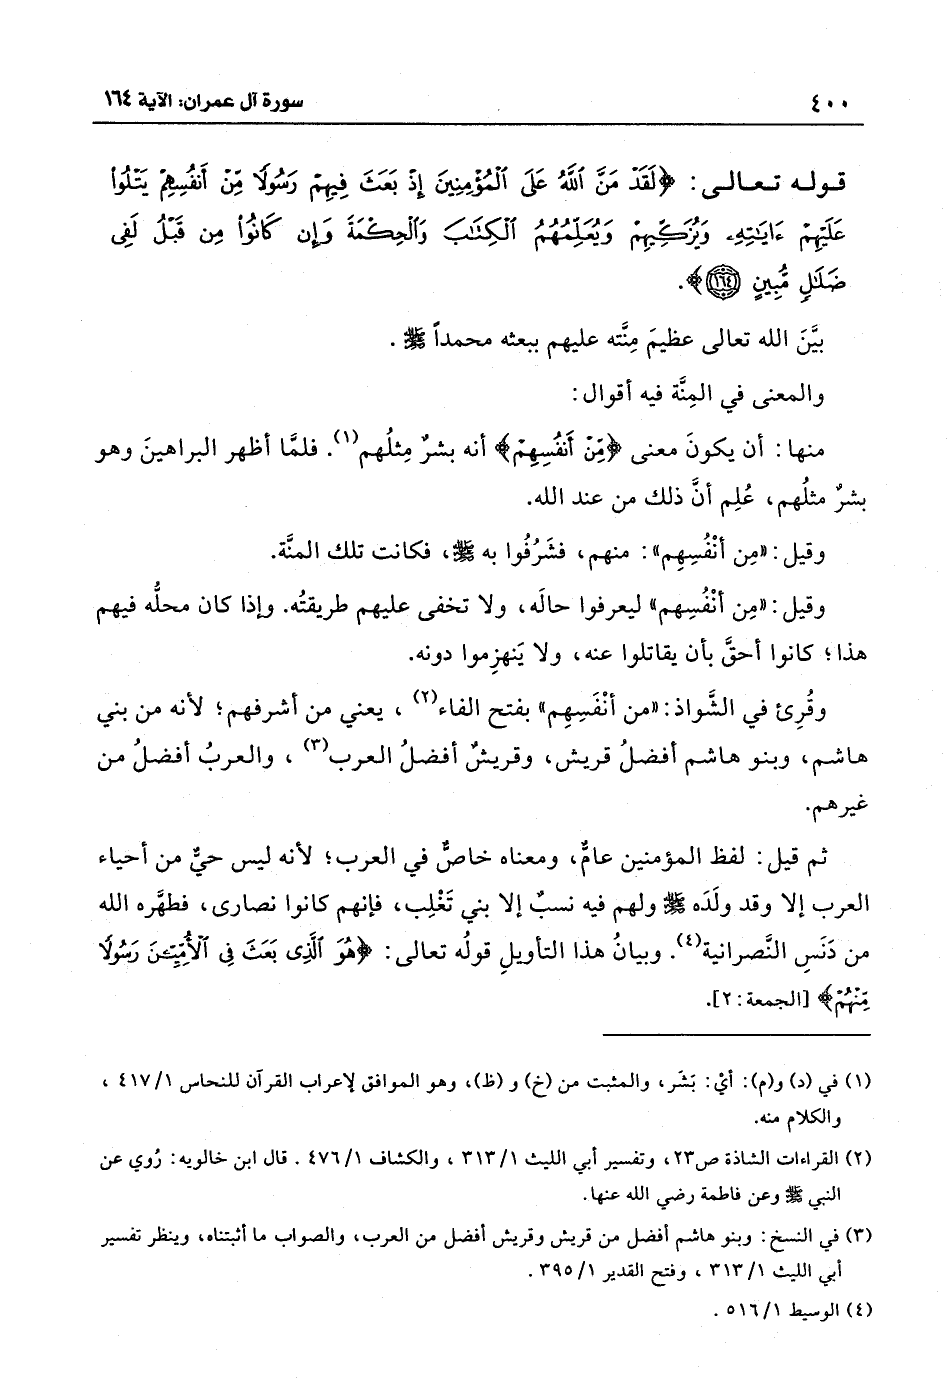 ٤٠٠
سورة آل عمران: الآية ١٦٤
قوله تعالى: ﴿لَقَدْ مَنَّ ٱللَّهُ عَلَى ٱلْمُؤْمِنِينَ إِذْ بَعَثَ فِيهِمْ رَسُولًا مِّنْ أَنفُسِهِمْ يَتْلُوا۟
عَلَيْهِمْ ءَايَـٰتِهِۦ وَيُزَكِّيهِمْ وَيُعَلِّمُهُمُ ٱلْكِتَـٰبَ وَٱلْحِكْمَةَ وَإِن كَانُوا۟ مِن قَبْلُ لَفِى
ضَلَـٰلٍ مُّبِينٍ ﴿١٦٤﴾﴾.
بيَّنَ الله تعالى عظيمَ مِنَّته عليهم ببعثه محمداً ﷺ.
والمعنى في المِنَّة فيه أقوال:
منها: أن يكونَ معنى ﴿مِّنْ أَنفُسِهِمْ﴾ أنه بشرٌ مِثلُهم(١). فلمَّا أظهر البراهينَ وهو
بشرٌ مثلُهم، عُلِم أنَّ ذلك من عند الله.
وقيل: «مِن أنْفُسِهِم»: منهم، فشَرُفُوا به ﷺ، فكانت تلك المنَّة.
وقيل: «مِن أنْفُسِهم» ليعرفوا حالَه، ولا تخفى عليهم طريقتُه. وإذا كان محلُّه فيهم
هذا؛ كانوا أحقَّ بأن يقاتلوا عنه، ولا يَنهزِموا دونه.
وقُرِئ في الشَّواذ: «من أنْفَسِهِم» بفتح الفاء(٢)، يعني من أشرفهم؛ لأنه من بني
هاشم، وبنو هاشم أفضلُ قريش، وقريشٌ أفضلُ العرب(٣)، والعربُ أفضلُ من
غيرهم.
ثم قيل: لفظ المؤمنين عامٌّ، ومعناه خاصٌّ في العرب؛ لأنه ليس حيٌّ من أحياء
العرب إلا وقد ولَدَه ﷺ ولهم فيه نسبٌ إلا بني تَغْلِب، فإنهم كانوا نصارى، فطهَّره الله
من دَنَسِ النَّصرانية(٤). وبيانُ هذا التأويلِ قولُه تعالى: ﴿هُوَ ٱلَّذِى بَعَثَ فِى ٱلْأُمِّيِّـۧنَ رَسُولًا
مِّنْهُمْ﴾ [الجمعة: ٢].
(١) في (د) و(م): أيْ: بَشَر، والمثبت من (خ) و (ظ)، وهو الموافق لإعراب القرآن للنحاس ٤١٧/١،
والكلام منه.
(٢) القراءات الشاذة ص٢٣، وتفسير أبي الليث ٣١٣/١، والكشاف ٤٧٦/١. قال ابن خالويه: رُوي عن
النبي ﷺ وعن فاطمة رضي الله عنها.
(٣) في النسخ: وبنو هاشم أفضل من قريش وقريش أفضل من العرب، والصواب ما أثبتناه، وينظر تفسير
أبي الليث ٣١٣/١، وفتح القدير ٣٩٥/١.
(٤) الوسيط ٥١٦/١.